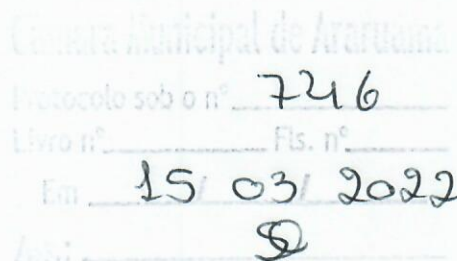 Câmara Municipal de Araruama
Protocolo sob o nº 746
Livro nº Fls. nº
Em 15 / 03 / 2022